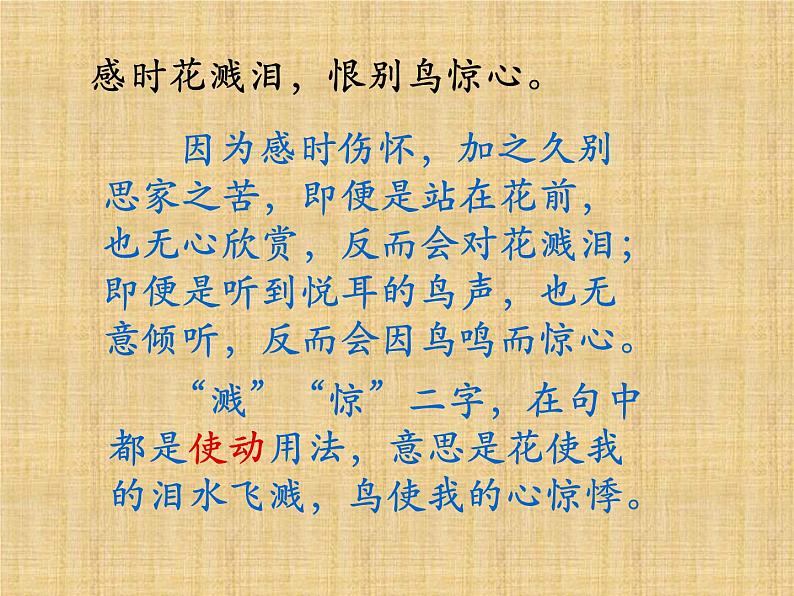 感时花溅泪，恨别鸟惊心。
因为感时伤怀，加之久别
思家之苦，即便是站在花前，
也无心欣赏，反而会对花溅泪；
即便是听到悦耳的鸟声，也无
意倾听，反而会因鸟鸣而惊心。
“溅”“惊”二字，在句中
都是使动用法，意思是花使我
的泪水飞溅，鸟使我的心惊悸。